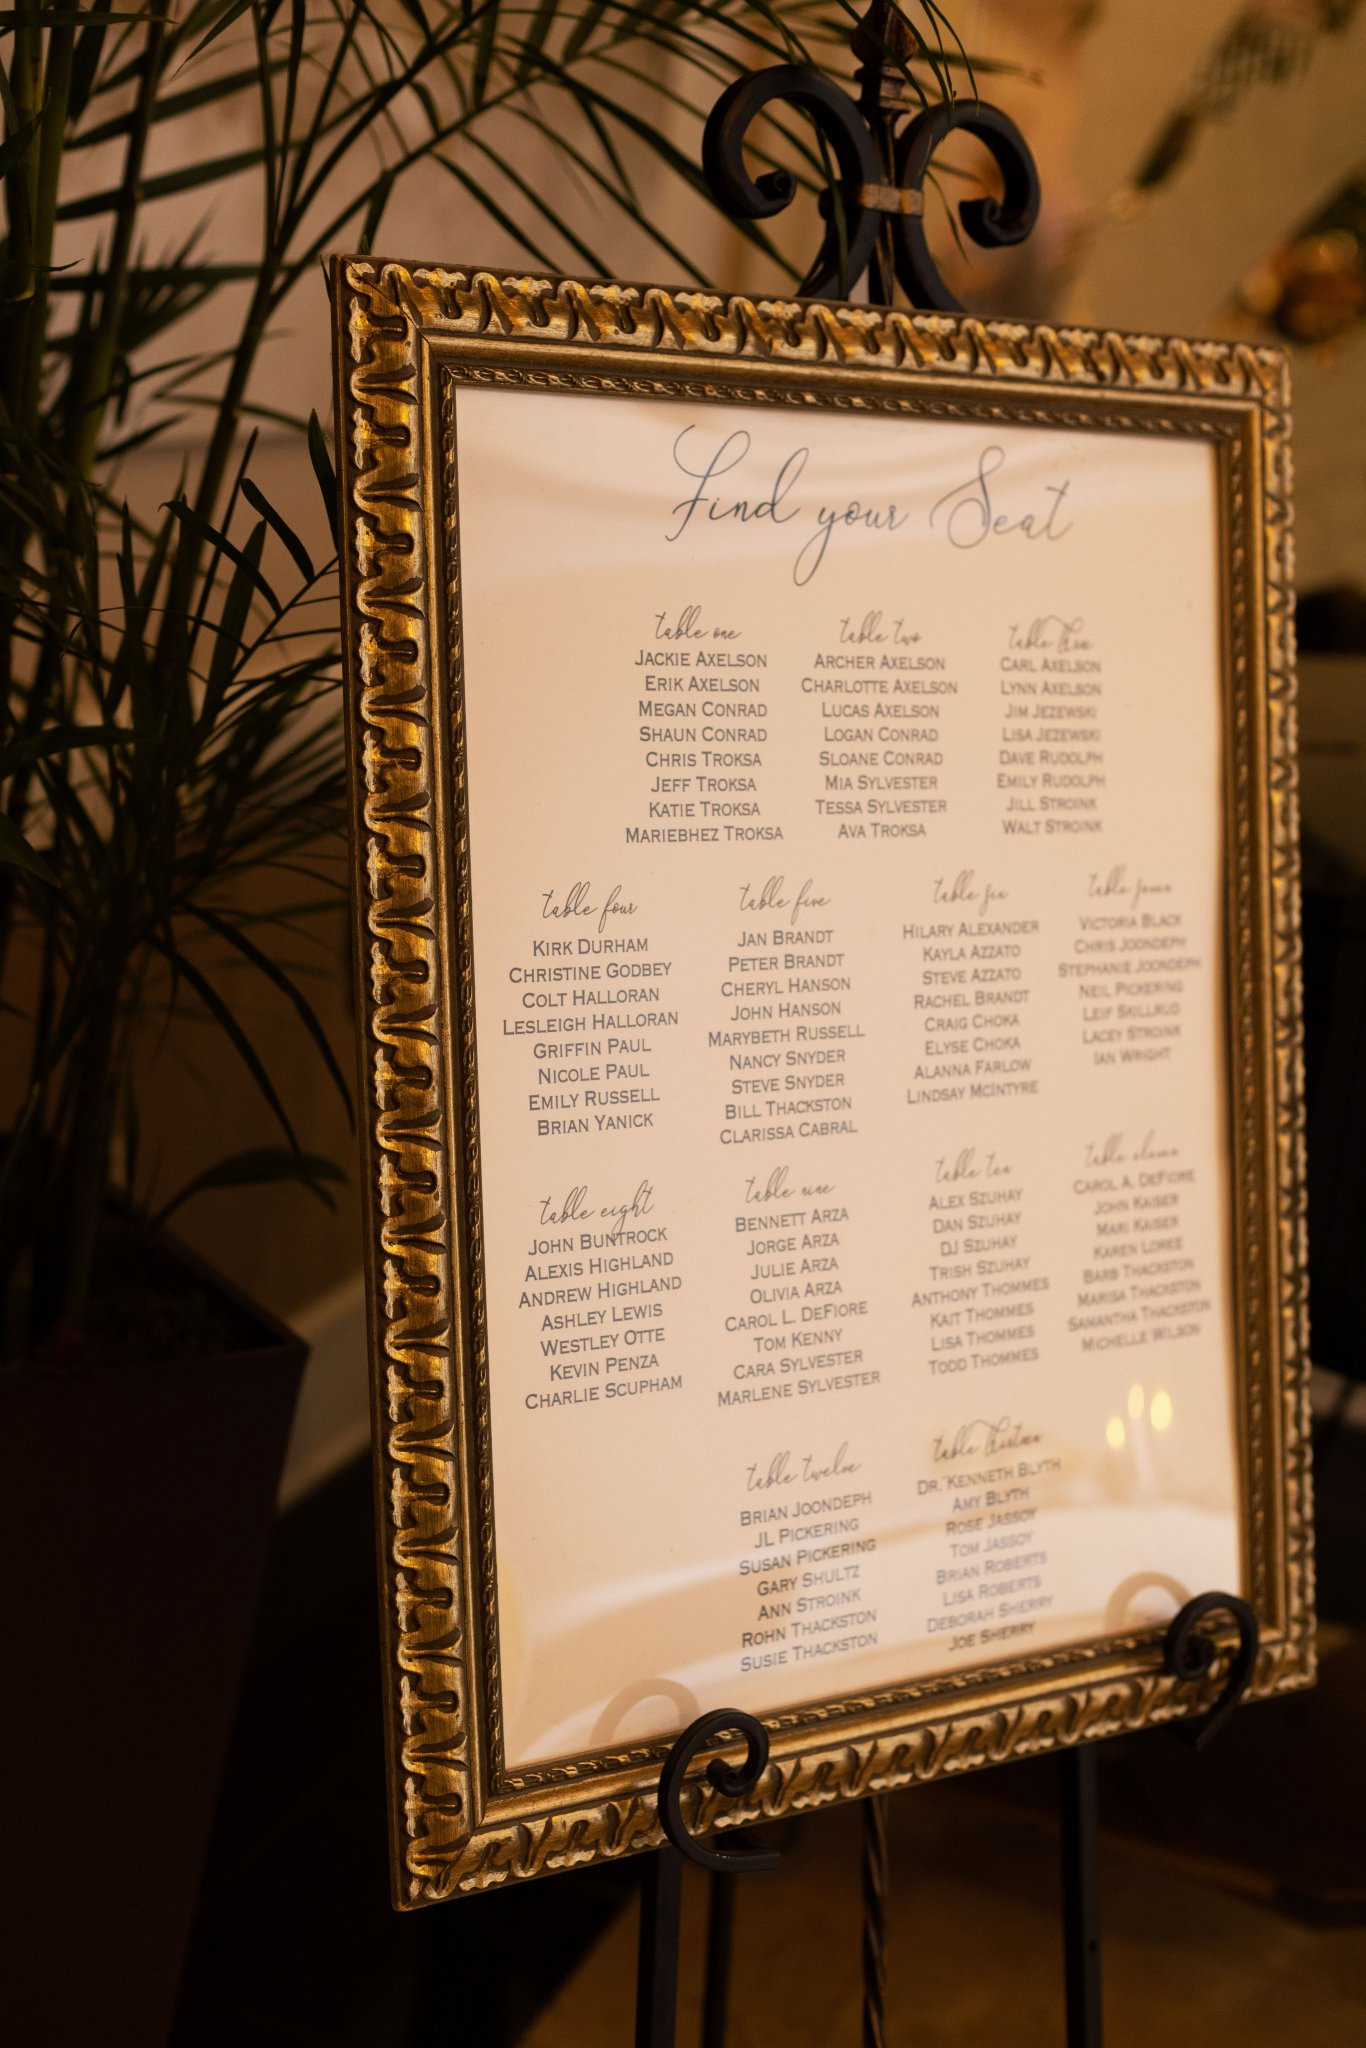 Find your Seat
table one
JACKIE AXELSON
ERIK AXELSON
MEGAN CONRAD
SHAUN CONRAD
CHRIS TROKSA
JEFF TROKSA
KATIE TROKSA
MARIEBHEZ TROKSA
table two
ARCHER AXELSON
CHARLOTTE AXELSON
LUCAS AXELSON
LOGAN CONRAD
SLOANE CONRAD
MIA SYLVESTER
TESSA SYLVESTER
AVA TROKSA
table three
CARL AXELSON
LYNN AXELSON
JIM JEZEWSKI
LISA JEZEWSKI
DAVE RUDOLPH
EMILY RUDOLPH
JILL STROINK
WALT STROINK
table four
KIRK DURHAM
CHRISTINE GODBEY
COLT HALLORAN
LESLEIGH HALLORAN
GRIFFIN PAUL
NICOLE PAUL
EMILY RUSSELL
BRIAN YANICK
table five
JAN BRANDT
PETER BRANDT
CHERYL HANSON
JOHN HANSON
MARYBETH RUSSELL
NANCY SNYDER
STEVE SNYDER
BILL THACKSTON
CLARISSA CABRAL
table six
HILARY ALEXANDER
KAYLA AZZATO
STEVE AZZATO
RACHEL BRANDT
CRAIG CHOKA
ELYSE CHOKA
ALANNA FARLOW
LINDSAY MCINTYRE
table seven
VICTORIA BLACK
CHRIS JOONDEPH
STEPHANIE JOONDEPH
NEIL PICKERING
LEIF SKILLRUD
LACEY STROINK
IAN WRIGHT
table eight
JOHN BUNTROCK
ALEXIS HIGHLAND
ANDREW HIGHLAND
ASHLEY LEWIS
WESTLEY OTTE
KEVIN PENZA
CHARLIE SCUPHAM
table nine
BENNETT ARZA
JORGE ARZA
JULIE ARZA
OLIVIA ARZA
CAROL L. DEFIORE
TOM KENNY
CARA SYLVESTER
MARLENE SYLVESTER
table ten
ALEX SZUHAY
DAN SZUHAY
DJ SZUHAY
TRISH SZUHAY
ANTHONY THOMMES
KAIT THOMMES
LISA THOMMES
TODD THOMMES
table eleven
CAROL A. DEFIORE
JOHN KAISER
MARI KAISER
KAREN LOREE
BARB THACKSTON
MARISA THACKSTON
SAMANTHA THACKSTON
MICHELLE WILSON
table twelve
BRIAN JOONDEPH
JL PICKERING
SUSAN PICKERING
GARY SHULTZ
ANN STROINK
ROHN THACKSTON
SUSIE THACKSTON
table thirteen
DR. KENNETH BLYTH
AMY BLYTH
ROSE JASSOY
TOM JASSOY
BRIAN ROBERTS
LISA ROBERTS
DEBORAH SHERRY
JOE SHERRY